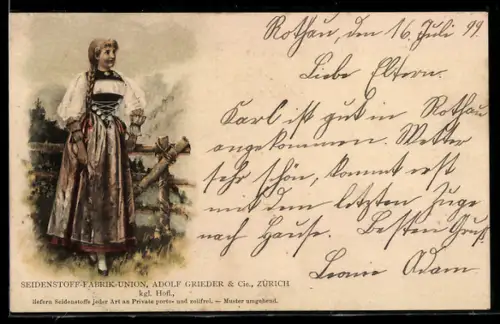 Rothau, den 16 Juli 99.
Liebe Eltern.
Karl ist gut in Rothau
angekommen. Wetter
sehr schön, kommt erst
mit dem letzten Zuge
nach Hause. Besten Gruß
Adam.
SEIDENSTOFF-FABRIK-UNION, ADOLF GRIEDER & Cie., ZÜRICH
kgl. Hofl.,
liefern Seidenstoffe jeder Art an Private porto- und zollfrei. — Muster umgehend.